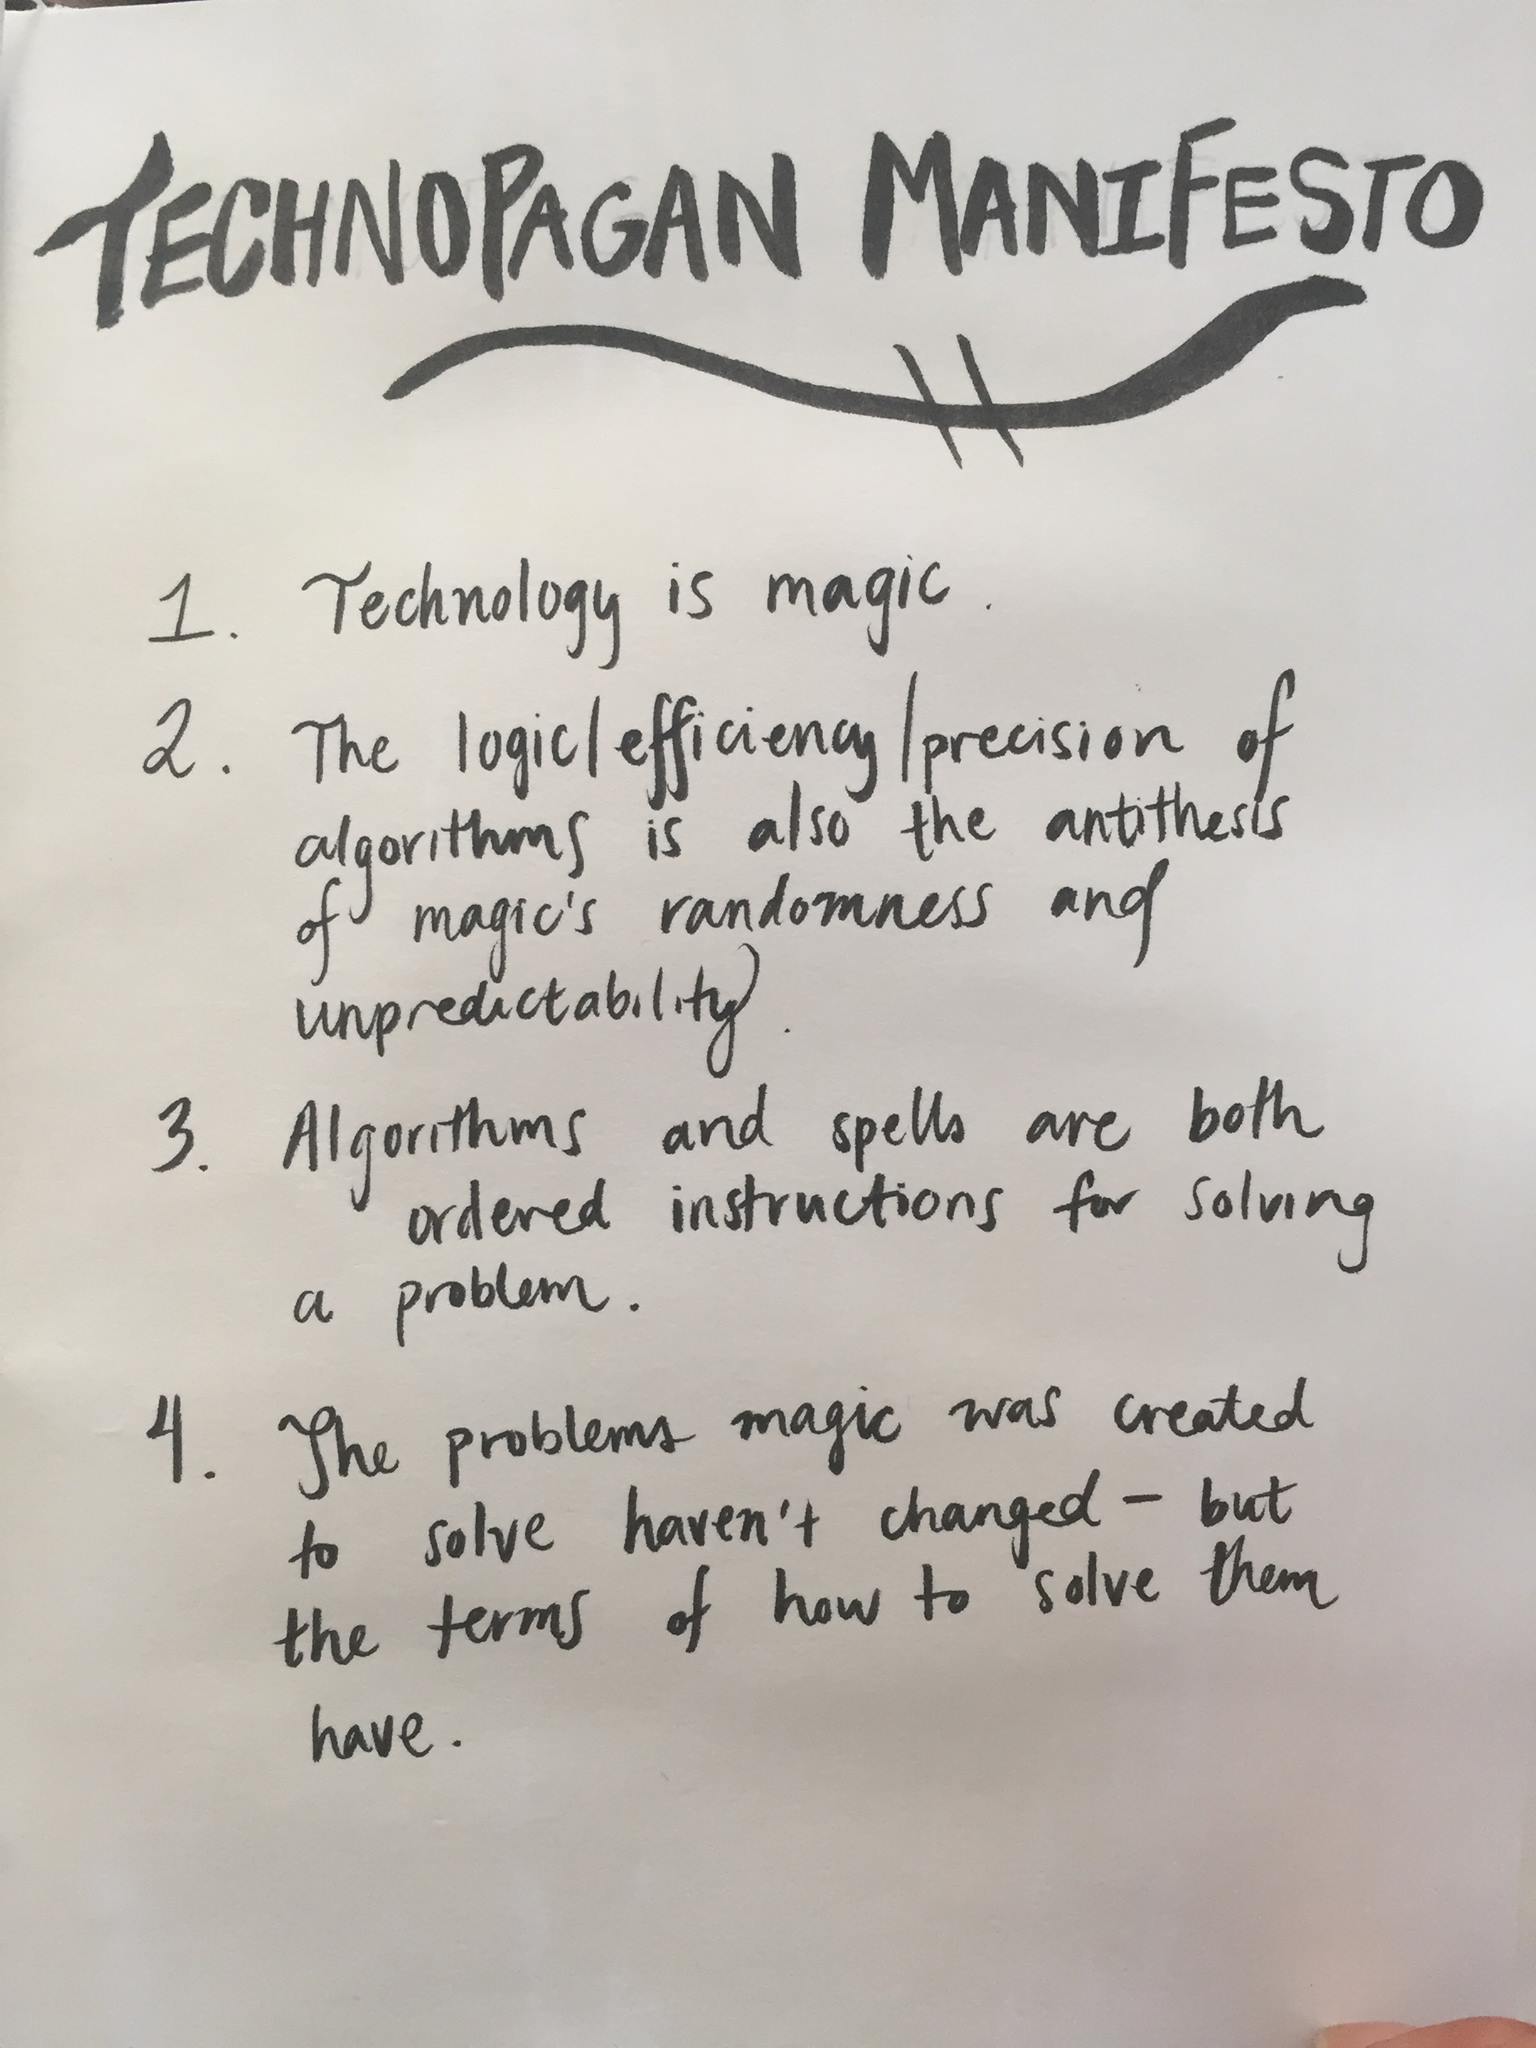 TECHNOPAGAN MANIFESTO
1. Technology is magic.
2. The logic/efficiency/precision of
algorithms is also the antithesis
of magic's randomness and
unpredictability.
3. Algorithms and spells are both
ordered instructions for solving
a problem.
4. The problems magic was created
to solve haven't changed – but
the terms of how to solve them
have.